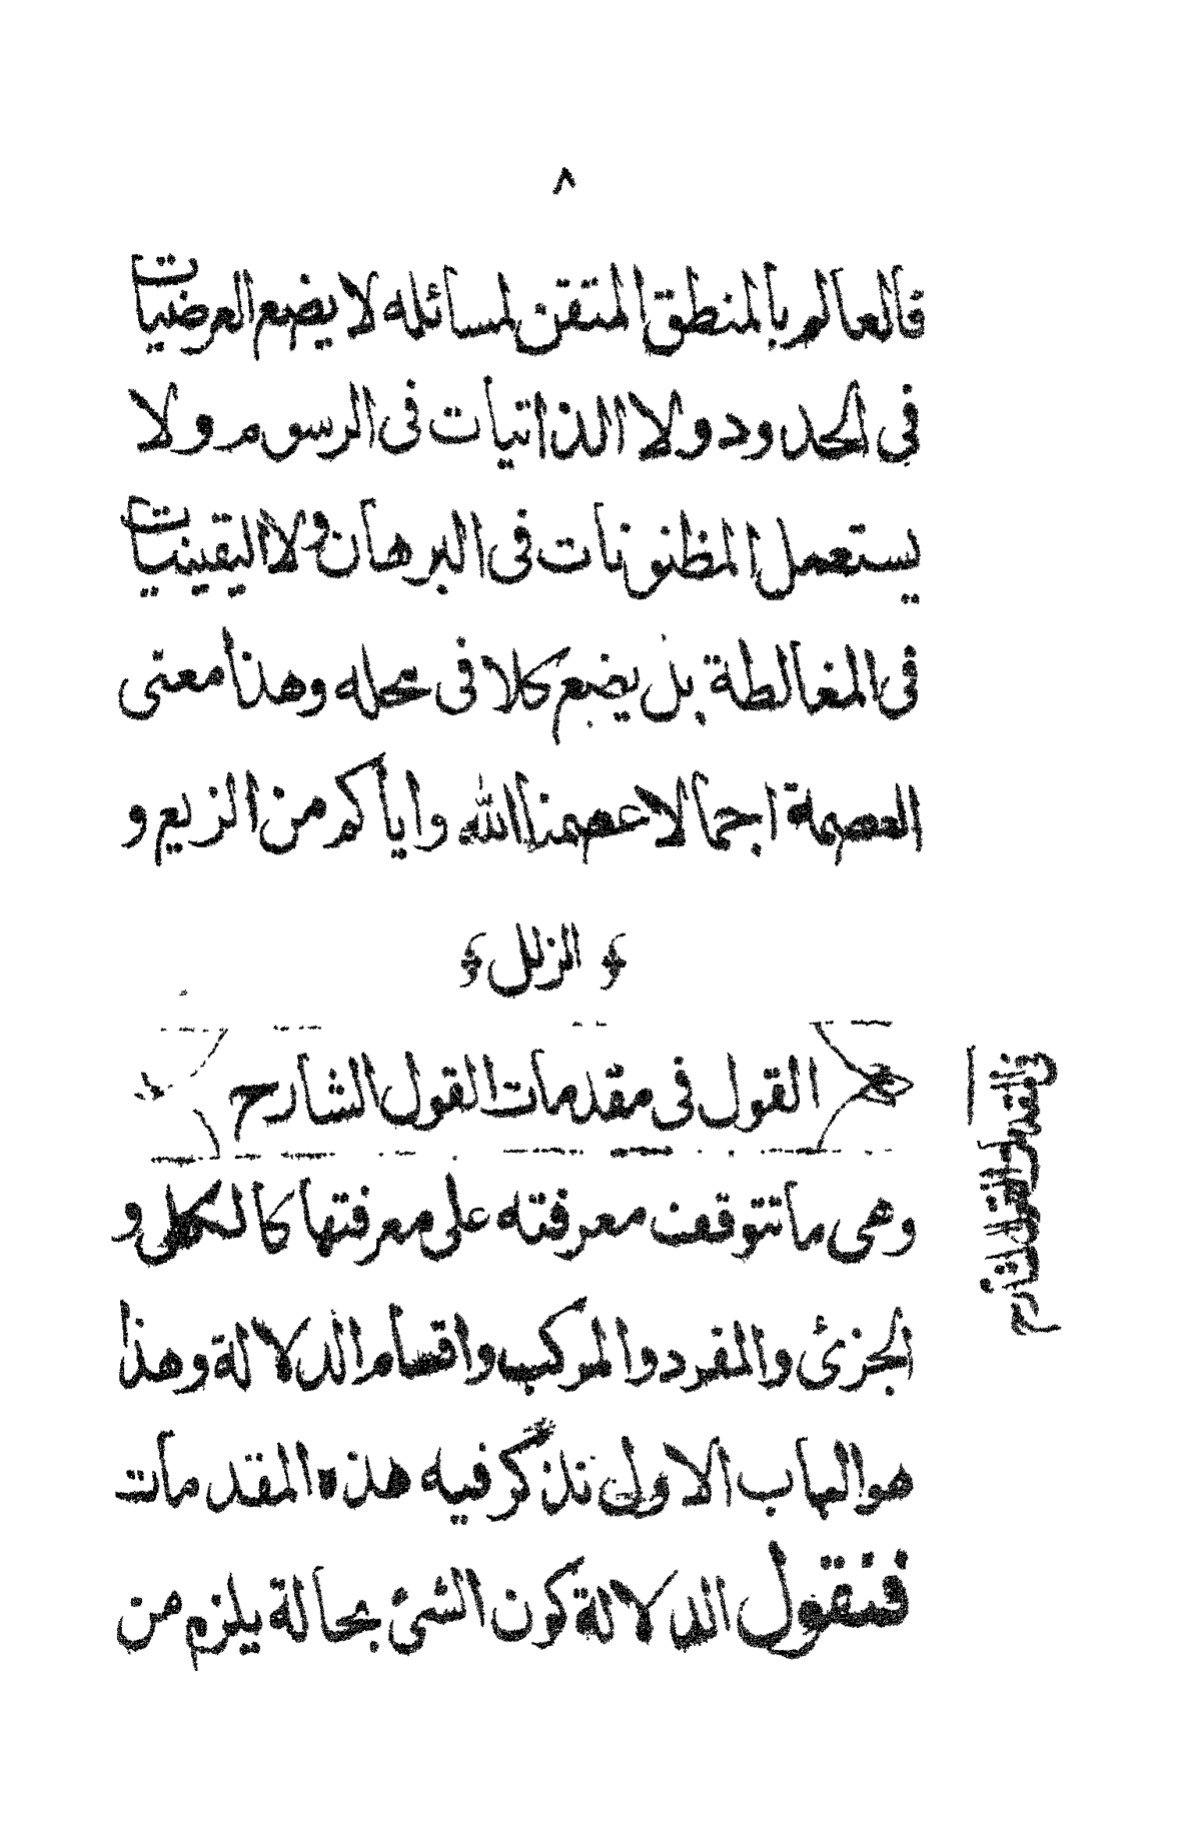 ٨
فالعالم بالمنطق المتقن لمسائله لا يضع العرضيات
فى الحدود ولا الذاتيات فى الرسوم ولا
يستعمل المظنونات فى البرهان ولا اليقينيات
فى المغالطة بل يضع كلا فى محله وهذا معنى
العصمة اجمالا عصمنا الله واياكم من الزيع و
﴿ الزلل ﴾
القول فى مقدمات القول الشارح
فى مقدمات القول الشارح
وهى ما تتوقف معرفته على معرفتها كالكلى و
الجزئى والمفرد والمركب واقسام الدلالة وهذا
هو الباب الاول نذكر فيه هذه المقدمات
فنقول الدلالة كون الشئ بحالة يلزم من